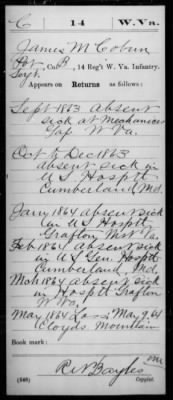 C | 14 | W. Va.
James M Coburn
Sergt., Co. B, 14 Reg't W. Va. Infantry.
Appears on Returns as follows:
Sept 1863 absent
sick at Mechanics
Gap W Va.
Oct to Dec 1863
absent sick in
U S Hosptl
Cumberland, Md.
Jany 1864 absent sick
in U S Hosptl
Grafton West Va
Feb. 1864 absent sick
in U S Gen. Hosptl
Cumberland, Md.
Mch 1864 absent sick
in Hosptl Grafton
W Va
May 1864 Loss May 9, 64
Cloyds Mountain
Book mark:
R N Bayles
(546) Copyist.